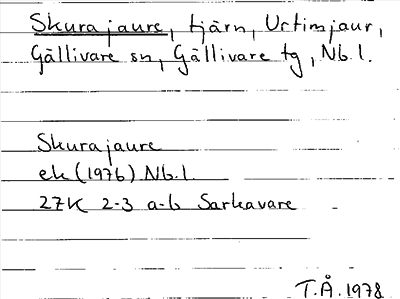 Skurajaure, tjärn, Urtimjaur,
Gällivare sn, Gällivare tg, Nb.l.
Skurajaure
ek (1976) Nb.l.
27K 2-3 a-b Sarkavare
T.Å. 1978